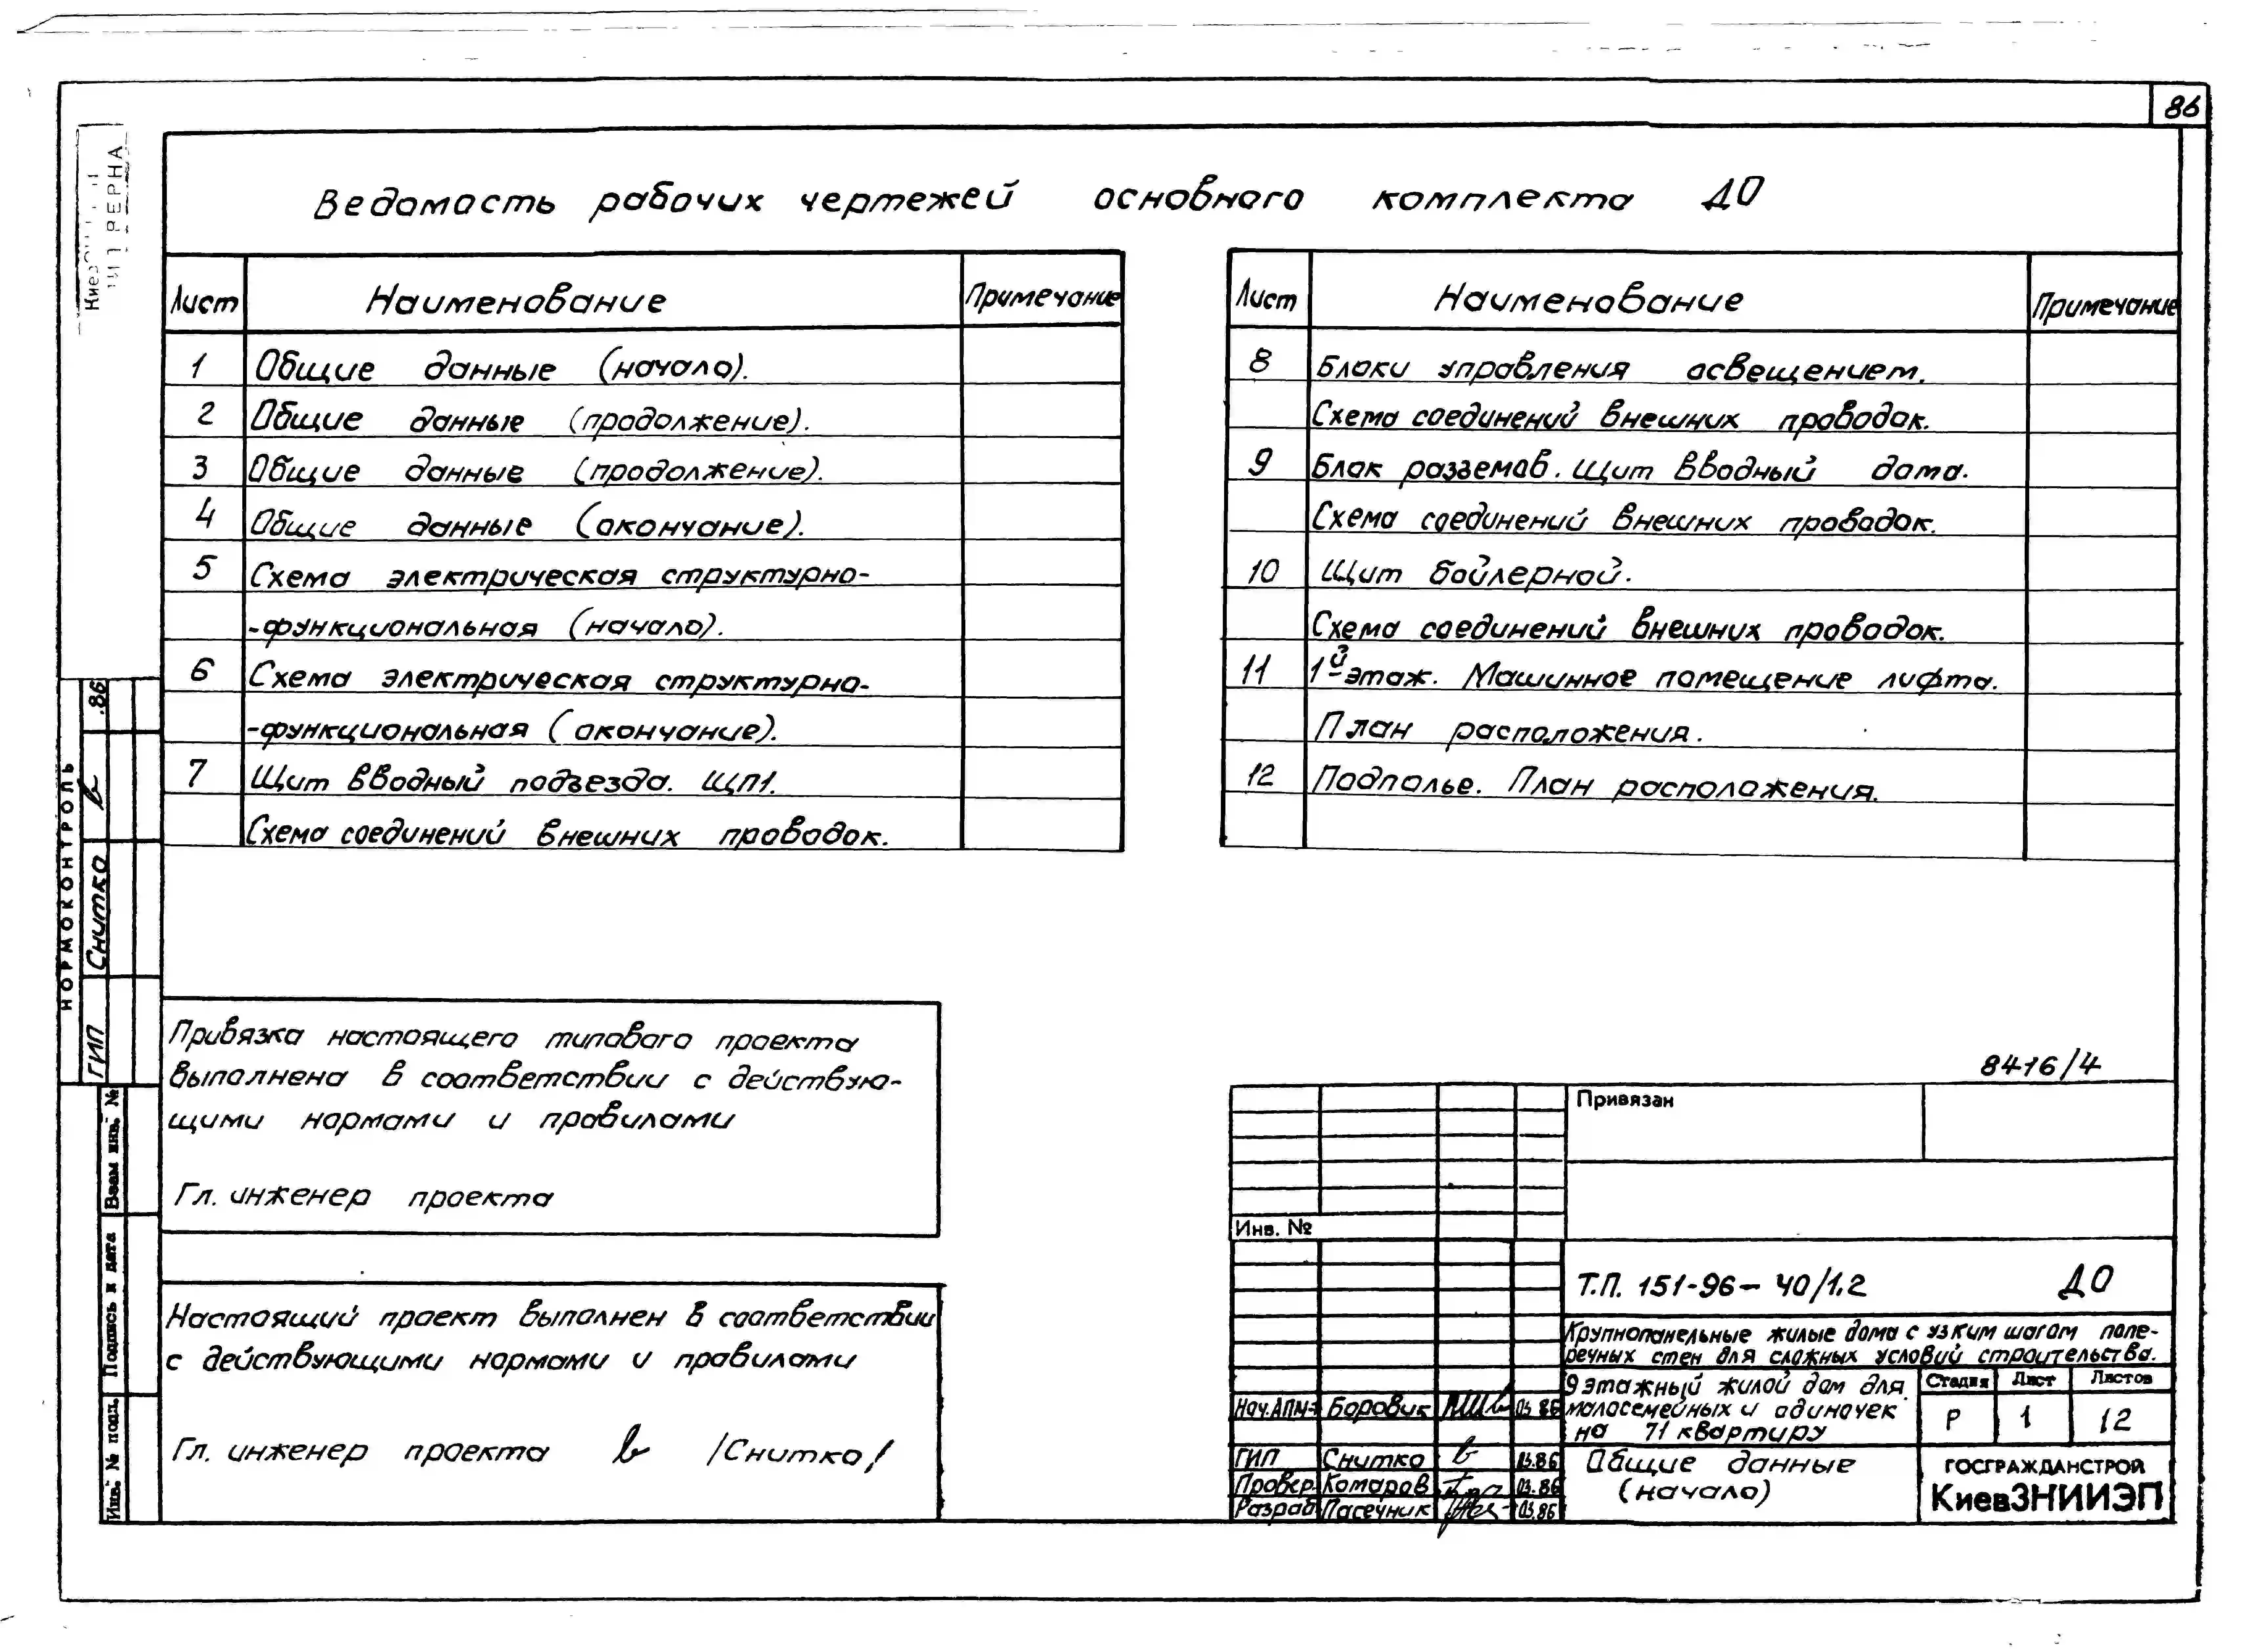 86
Ведомость рабочих чертежей основного комплекта ДО
Лист Наименование Примечание
1 Общие данные (начало).
2 Общие данные (продолжение).
3 Общие данные (продолжение).
4 Общие данные (окончание).
5 Схема электрическая структурно-
-функциональная (начало).
6 Схема электрическая структурно-
-функциональная (окончание).
7 Щит вводный подъезда. ЩП1.
Схема соединений внешних проводок.
Лист Наименование Примечание
8 Блоки управления освещением.
Схема соединений внешних проводок.
9 Блок разъемов. Щит вводный дома.
Схема соединений внешних проводок.
10 Щит бойлерной.
Схема соединений внешних проводок.
11 1й этаж. Машинное помещение лифта.
План расположения.
12 Подполье. План расположения.
НОРМОКОНТРОЛЬ
ГИП Снитко .86
Взам инв. №
Подпись и дата
Инв. № подл.
Привязка настоящего типового проекта
выполнена в соответствии с действую-
щими нормами и правилами
Гл. инженер проекта
Настоящий проект выполнен в соответствии
с действующими нормами и правилами
Гл. инженер проекта /Снитко/
8416/4
Привязан
Инв. №
Т.П. 151-96-40/1.2 ДО
Крупнопанельные жилые дома с узким шагом попе-
речных стен для сложных условий строительства.
9 этажный жилой дом для
малосемейных и одиночек
на 71 квартиру
Стадия Лист Листов
Р 1 12
Нач.АПМ-3 Боровик 03.86
ГИП Снитко 03.86
Провер. Комаров 03.86
Разраб Пасечник 03.86
Общие данные
(начало)
ГОСГРАЖДАНСТРОЙ
КиевЗНИИЭП